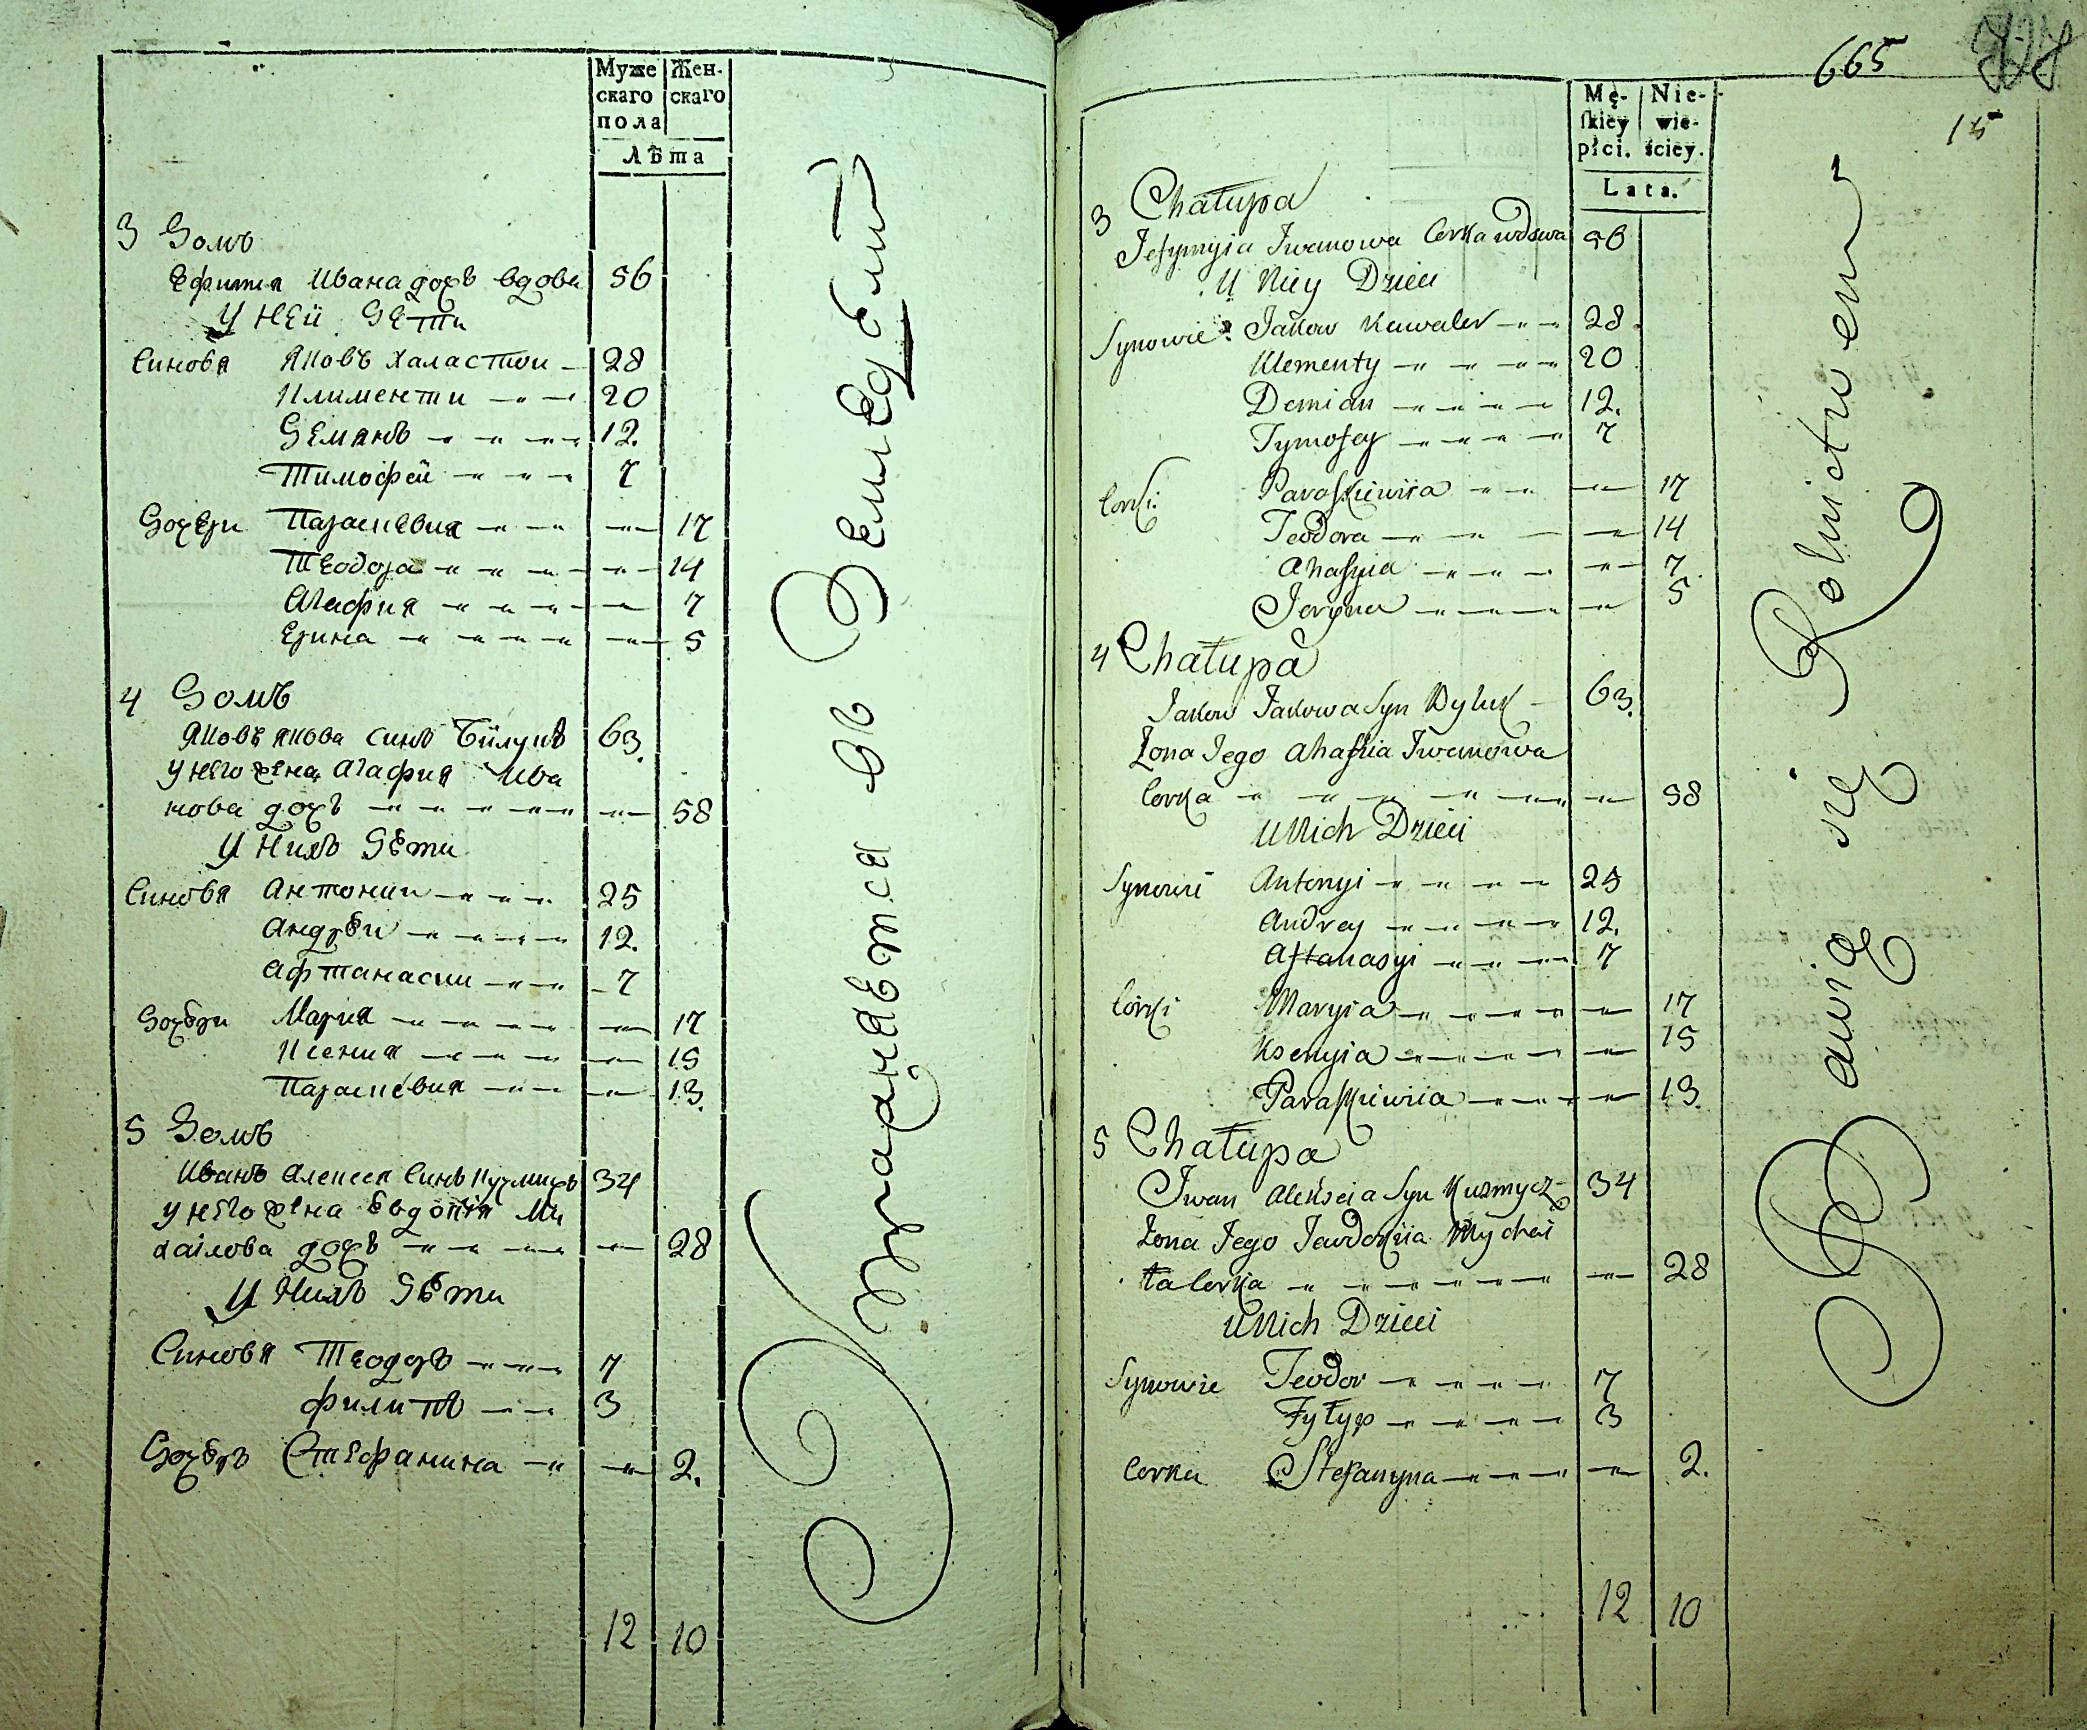 Муже
скаго
пола
Жен-
скаго
Лѣта
3 Домъ
Ефимия Ивана дочъ вдова 56
У Ней Дети
Синовя Яковъ Халастои 28
Клименти 20
Демянъ 12.
Тимофей 7
Дочери Параскевия 17
Теодора 14
Агафия 7
Ерина 5
4 Домъ
Яковъ Якова Синъ 63.
у него жена Агафия Ива
нова дочъ 58
У Нихъ Дѣти
Синовя Антонии 25
Андрѣи 12.
Афтанасии 7
Дочѣри Мария 17
Ксения 15
Параскевия 13.
5 Домъ
Иванъ Алексея Синъ Кузмичъ 34
у него жена Евдокия Ми
хаілова дочъ 28
У Нихъ Дѣти
Синовя Теодоръ 7
Филипъ 3
Дочѣръ Стефанина 2.
12 10
Упражняется въ Земледелии
665
15
Mę-
skiey
płci.
Nie-
wie-
ściey.
Lata.
3 Chałupa
Jefymyia Iwanowa Corka wdowa 56
U Niey Dzieci
Synowie: Jakow Kawaler 28
Klementy 20
Demian 12.
Tymofey 7
Corki: Paraskiewiia 17
Teodora 14
Ahafyia 7
Jeryna 5
4 Chałupa
Jakow Jakowa Syn 63.
Żona Jego Ahafiia Iwanowa
Corka 58
U Nich Dzieci
Synowie Antonyi 25
Andrey 12.
Aftanasyi 7
Córki Maryia 17
Ksenyia 15
Paraskiewiia 13.
5 Chałupa
Iwan Aleksieia Syn Kuzmycz 34
Żona Jego Jewdokiia Mychai
ła Corka 28
U Nich Dzieci
Synowie Teodor 7
Fyłyp 3
Corka Stefanyna 2.
12 10
Bawią się Rolnictwem